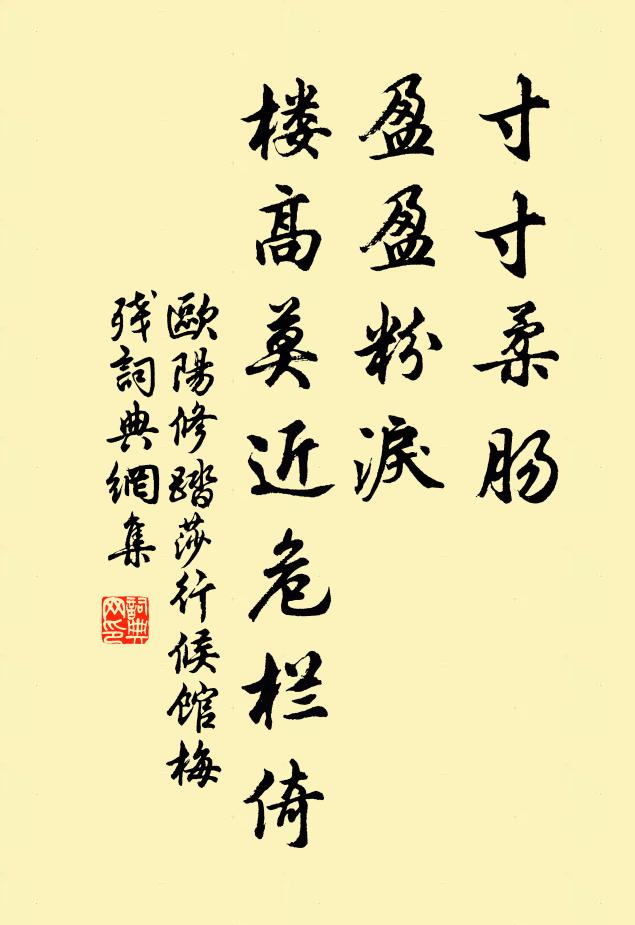 寸寸柔肠
盈盈粉淚
楼高莫近危栏倚
歐陽修踏莎行候馆梅
残詞典網集
詞典网印